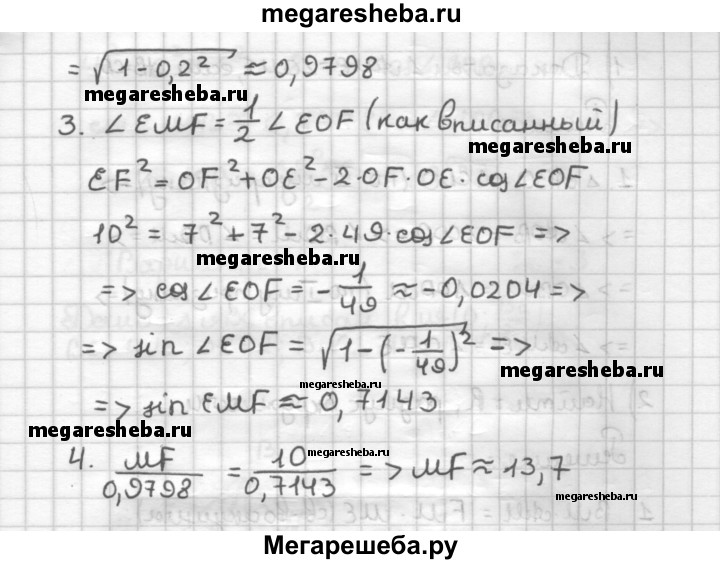 megaresheba.ru
= √(1-0,2²) ≈ 0,9798
megaresheba.ru megaresheba.ru
3. ∠EMF = 1/2 ∠EOF (как вписанный)
EF² = OF² + OE² - 2·OF·OE·cos∠EOF
10² = 7² + 7² - 2·49·cos∠EOF =>
megaresheba.ru
=> cos∠EOF = -1/49 ≈ -0,0204 =>
=> sin ∠EOF = √(1-(-1/49)²) =>
megaresheba.ru
megaresheba.ru
=> sin EMF ≈ 0,7143
megaresheba.ru
megaresheba.ru
4. MF/0,9798 = 10/0,7143 => MF ≈ 13,7
megaresheba.ru
megaresheba.ru
Мегарешеба.ру